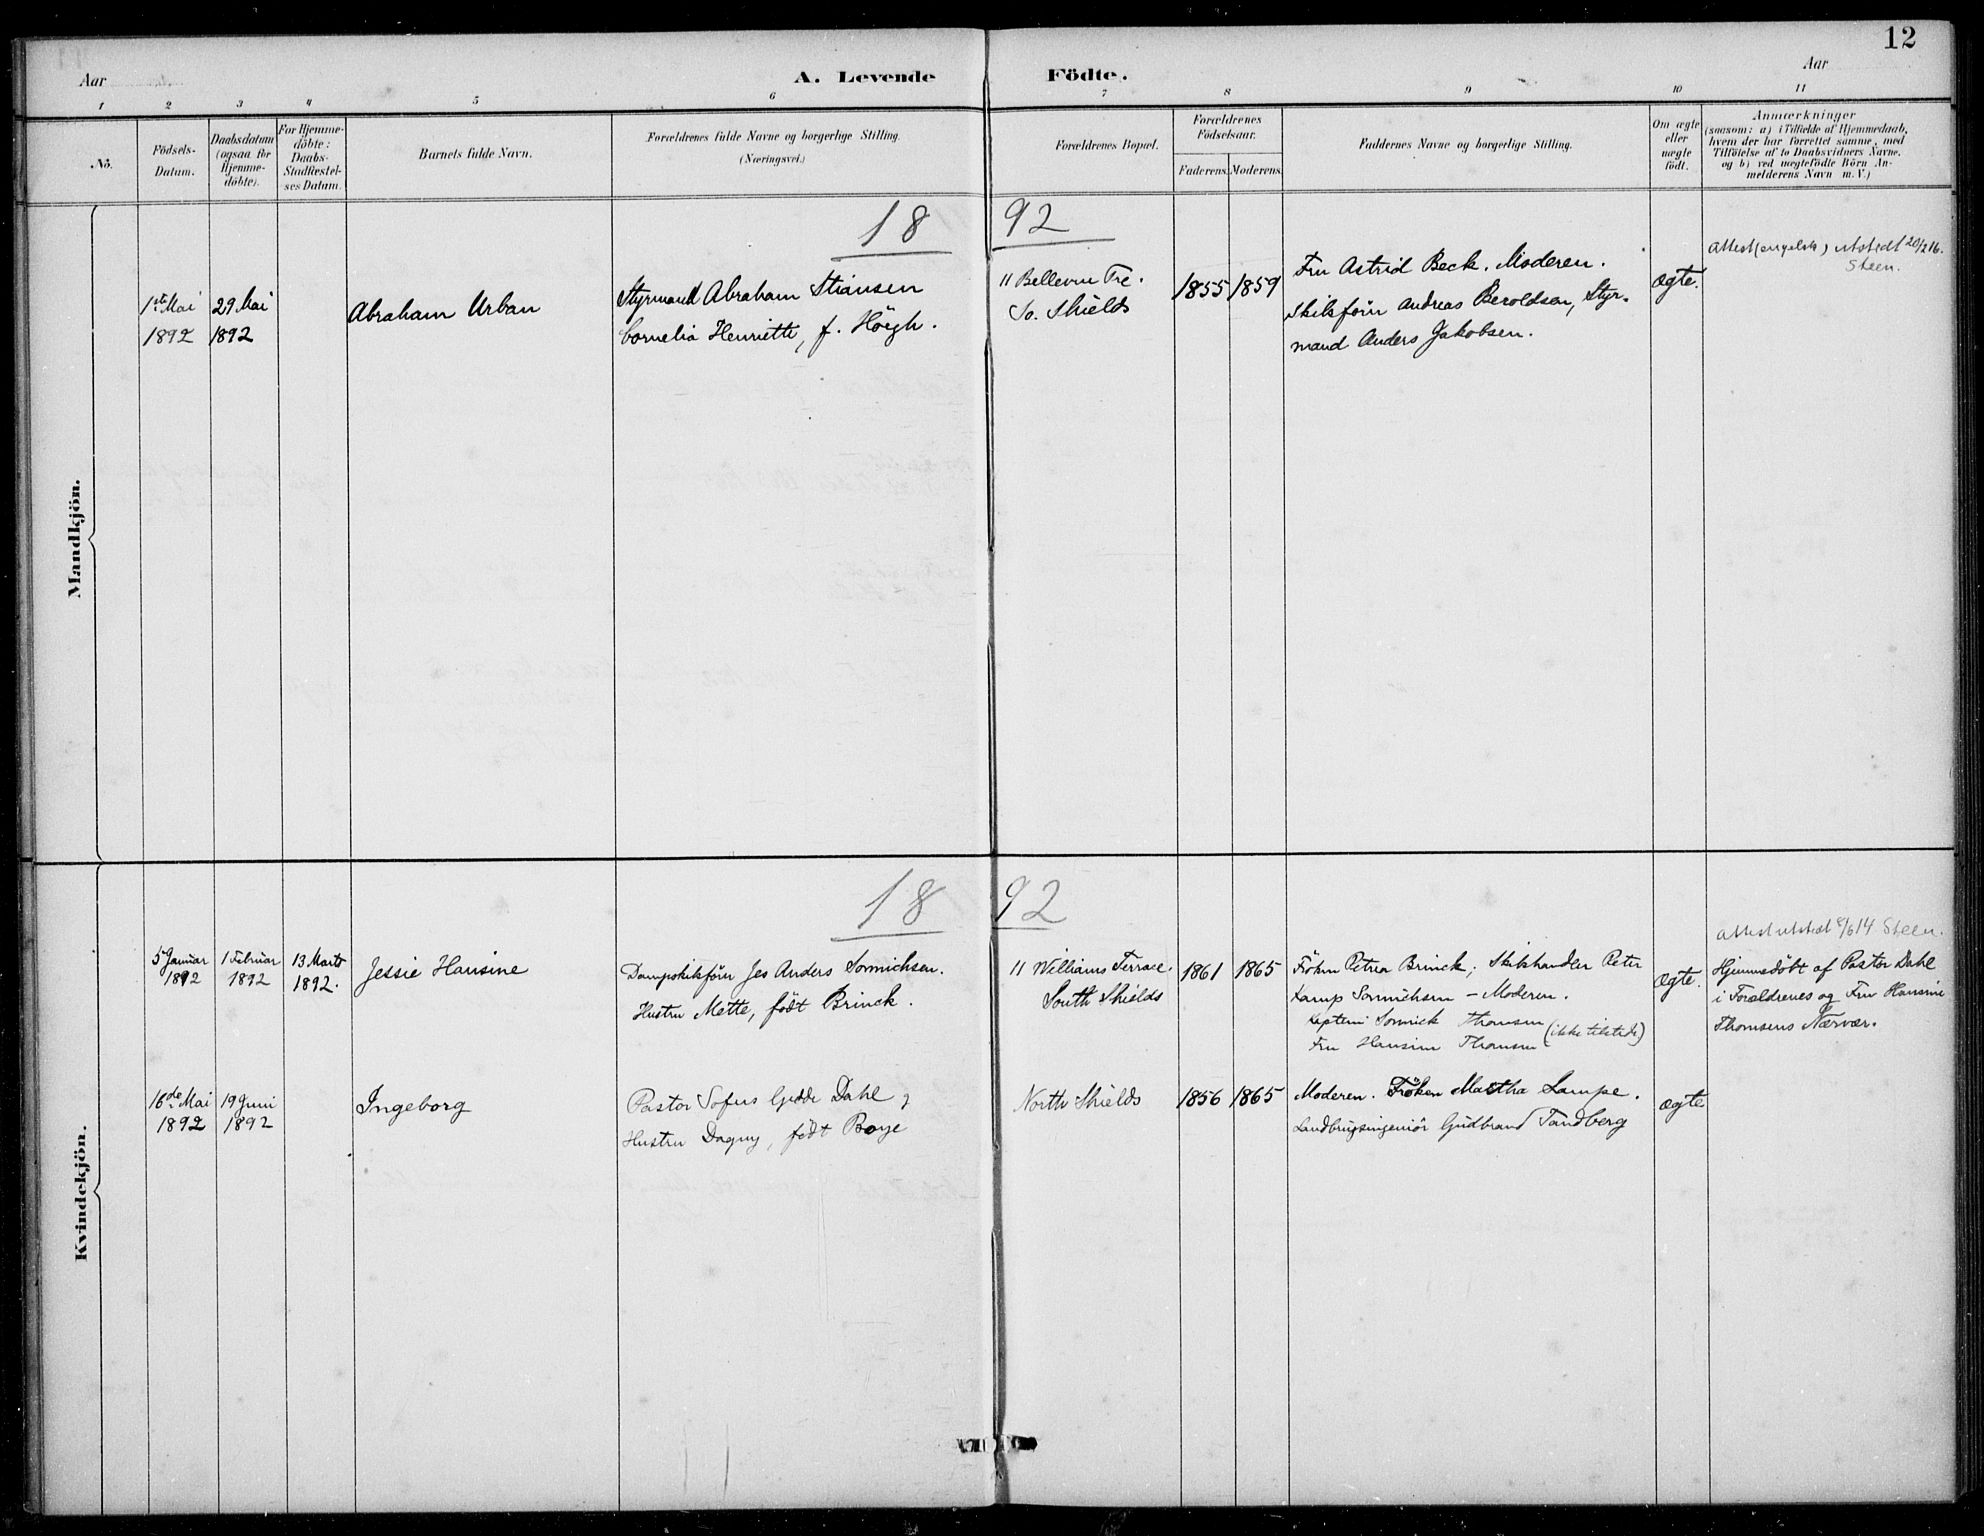 12
Aar
A. Levende Födte.
Aar
1 2 3 4 5 6 7 8 9 10 11
No.
Födsels-
Datum.
Daabsdatum
(ogsaa for
Hjemme-
döbte).
For Hjemme-
döbte:
Daabs-
Stadfæstel-
ses Datum.
Barnets fulde Navn.
Forældrenes fulde Navne og borgerlige Stilling.
(Næringsvei.)
Forældrenes Bopæl.
Forældrenes
Födselsaar.
Faderens. Moderens.
Faddernes Navne og borgerlige Stilling.
Om ægte
eller
uægte
födt.
Anmærkninger
(saasom: a) i Tilfælde af Hjemmedaab,
hvem der har forrettet samme, med
Tilföielse af to Daabsvidners Navne,
og b) ved uægtefödte Börn An-
melderens Navn m. V.)
Mandkjön.
1892
1ste Mai
1892
29 Mai
1892
Abraham Urban
Styrmand Abraham Stiansen
Cornelia Henriette, f. Höegh.
11 Bellevue Tre.
So. Shields
1855 1859
Fru Astrid Beck. Moderen.
Skibsförer Andreas Beroldsen, Styr-
mand Anders Jakobsen.
Ægte.
Attest (engelsk) utstedt 20/2 16.
Steen.
Kvindekjön.
1892
5 Januar
1892
1 Februar
1892
13 Marts
1892.
Jessie Hansine
Dampskibsförer Jes Anders Sonnichsen.
Hustru Mette, födt Brinck.
11 Williams Terrace.
South Shields
1861 1865
Fröken Petra Brinck; Skibshandler Peter
Kamp Sonnichsen – Moderen.
Kaptein Sonnick Thomsen
Fru Hansine Thomsen (ikke tilstede)
Ægte.
Attest utstedt 8/6 14 Steen.
Hjemmedöbt af Pastor Dahl
i Forældrenes og Fru Hansine
Thomsens Nærvær.
16de Mai
1892
19 Juni
1892
Ingeborg
Pastor Sofus Gedde Dahl og
Hustru Dagny, födt Boye
North Shields
1856 1865
Moderen. Fröken Martha Lampe.
Landbrugsingeniör Gudbrand Tandberg
Ægte